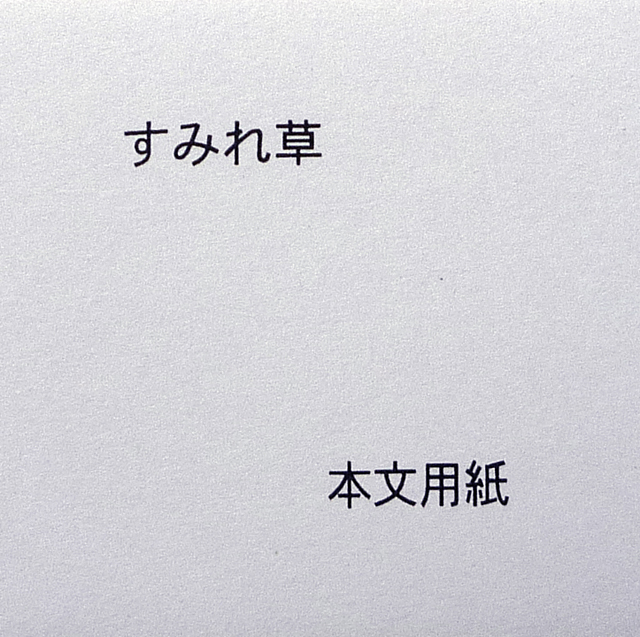 すみれ草
本文用紙